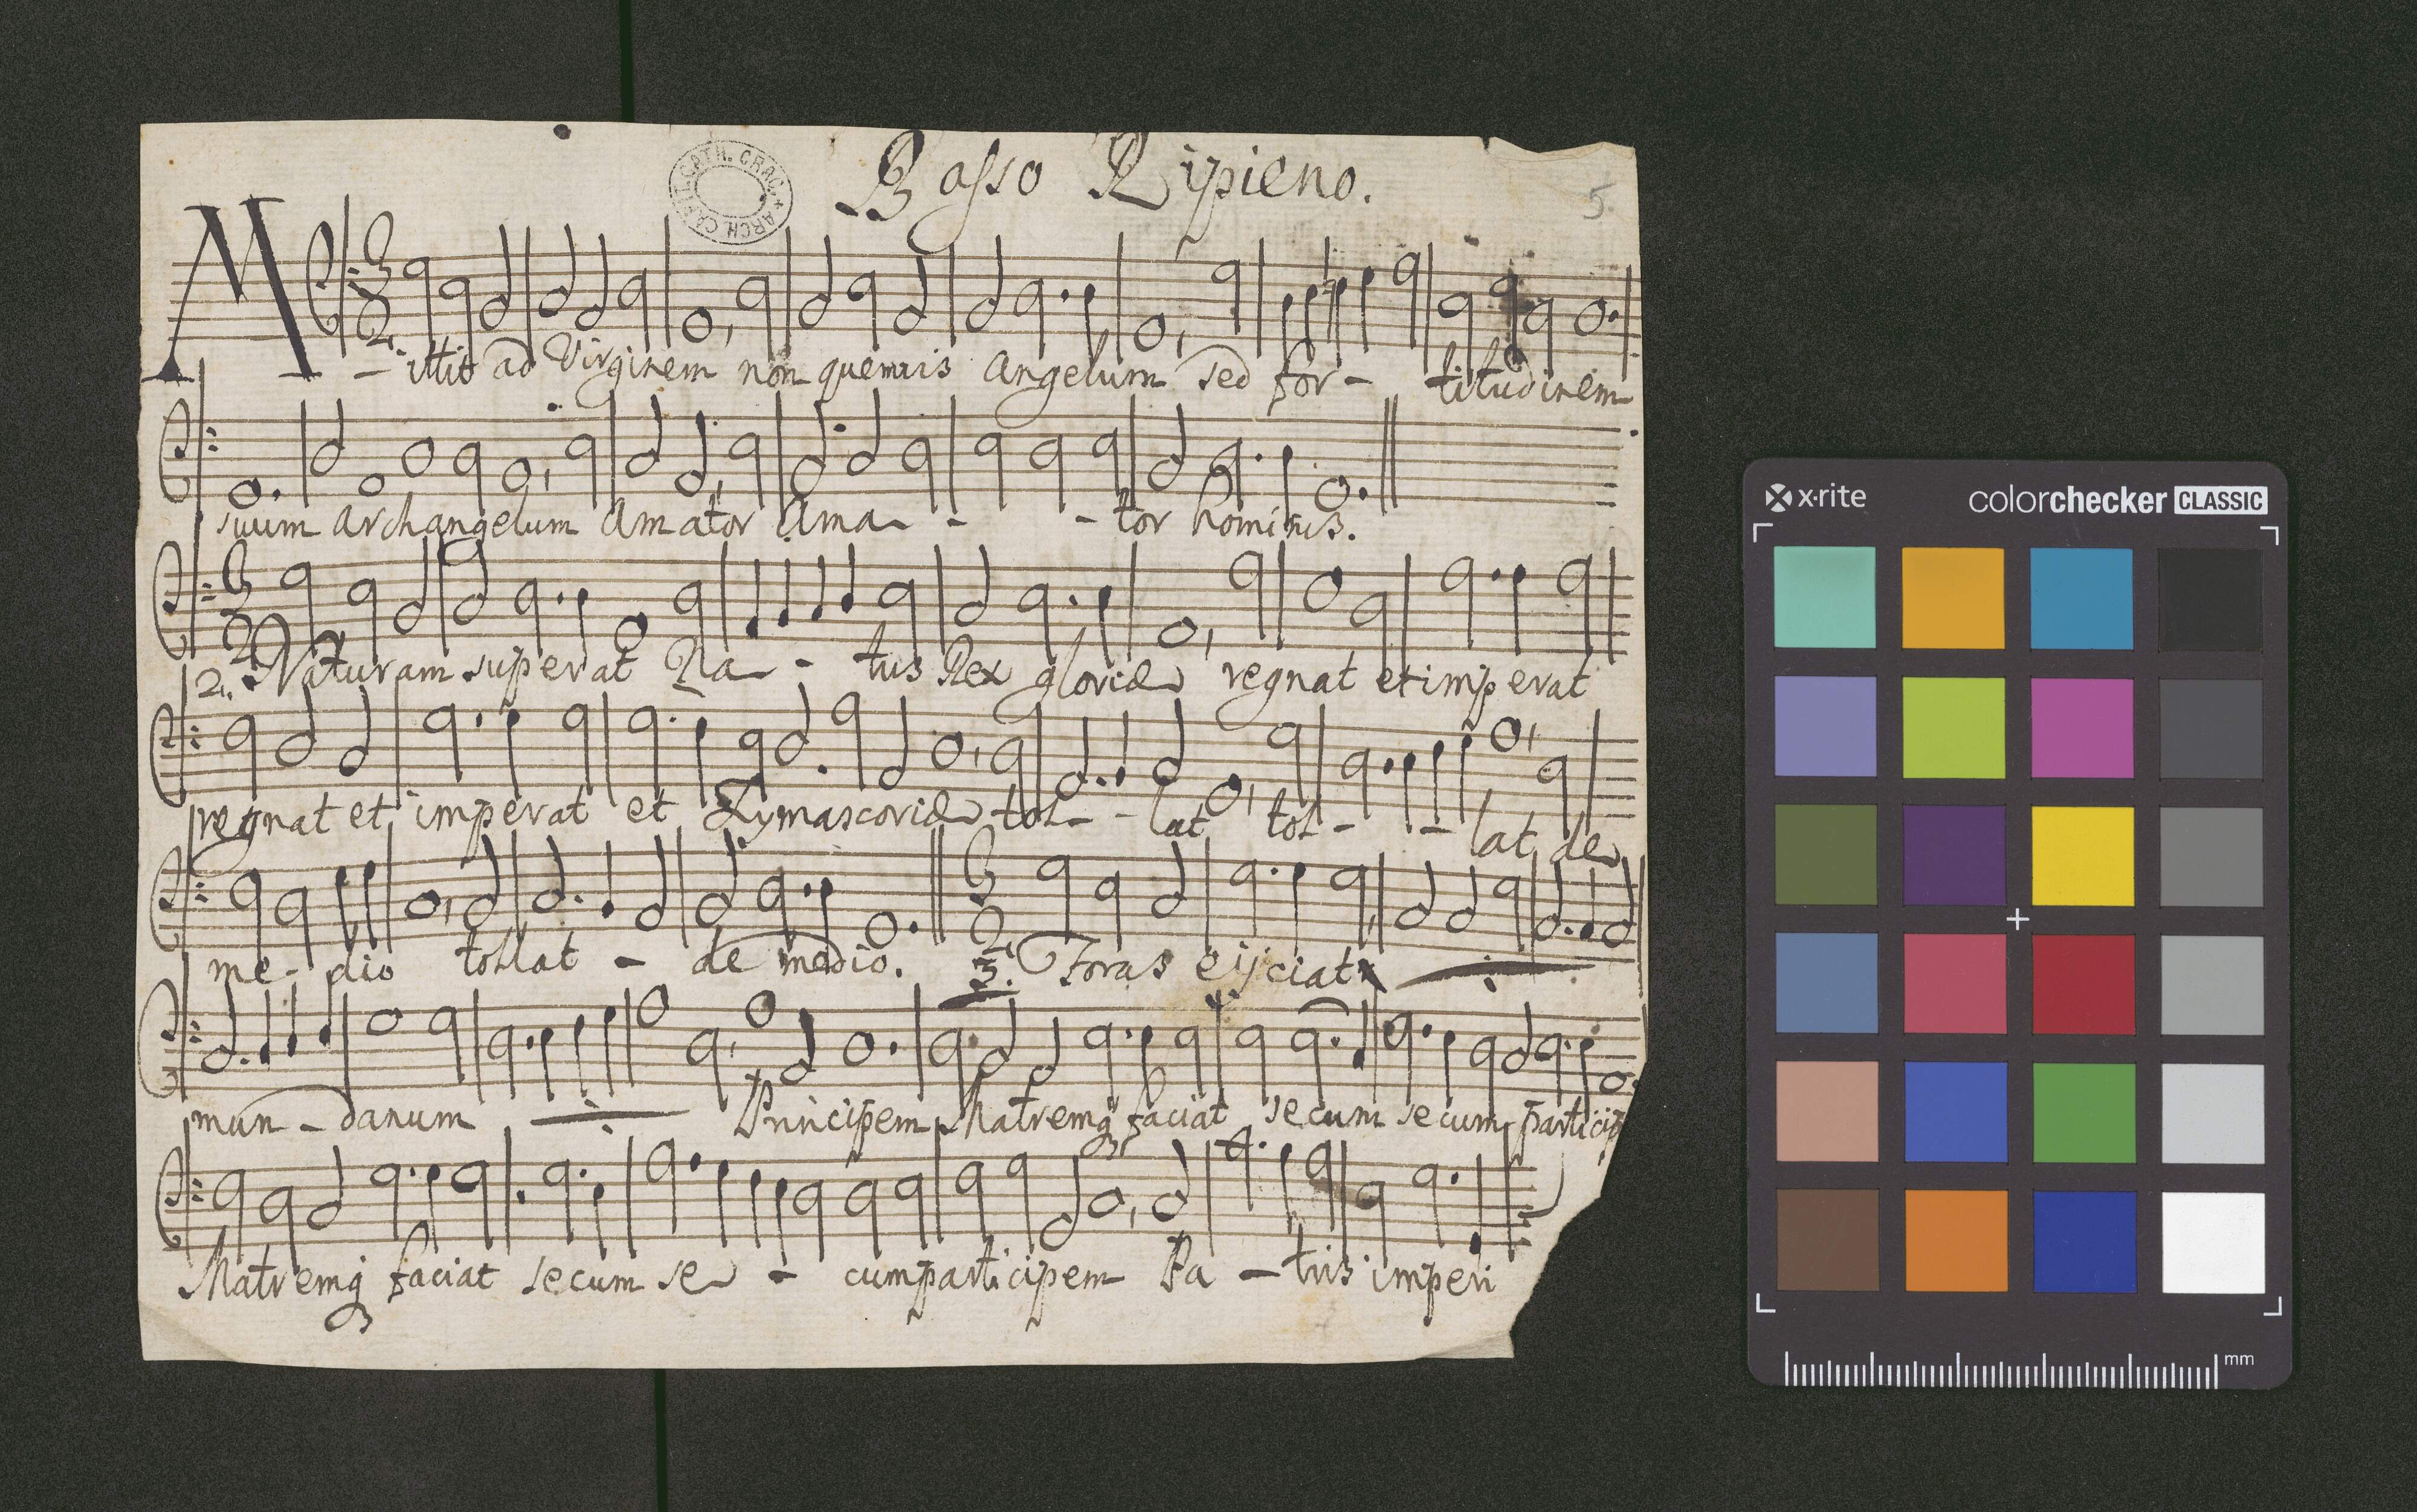 CAPIT. CATH. CRAC. * ARCH.
Basso Ripieno.
5.
3
2.
M - ittit ad Virginem non quemvis Angelum sed for - titudinem
suum archangelum Amator Ama - - - tor hominis.
3
2
2. Naturam superat Na - tus Rex gloriæ regnat et imperat
regnat et imperat et Zymascoriæ tol - - lat tol - - lat de
me - dio tollat - de medio. 3. Foras eijciat
3
2
mun - danum Principem Matremq faciat secum secum particip
Matremq faciat secum se - cum participem Pa - tris imperi
x·rite colorchecker CLASSIC
mm